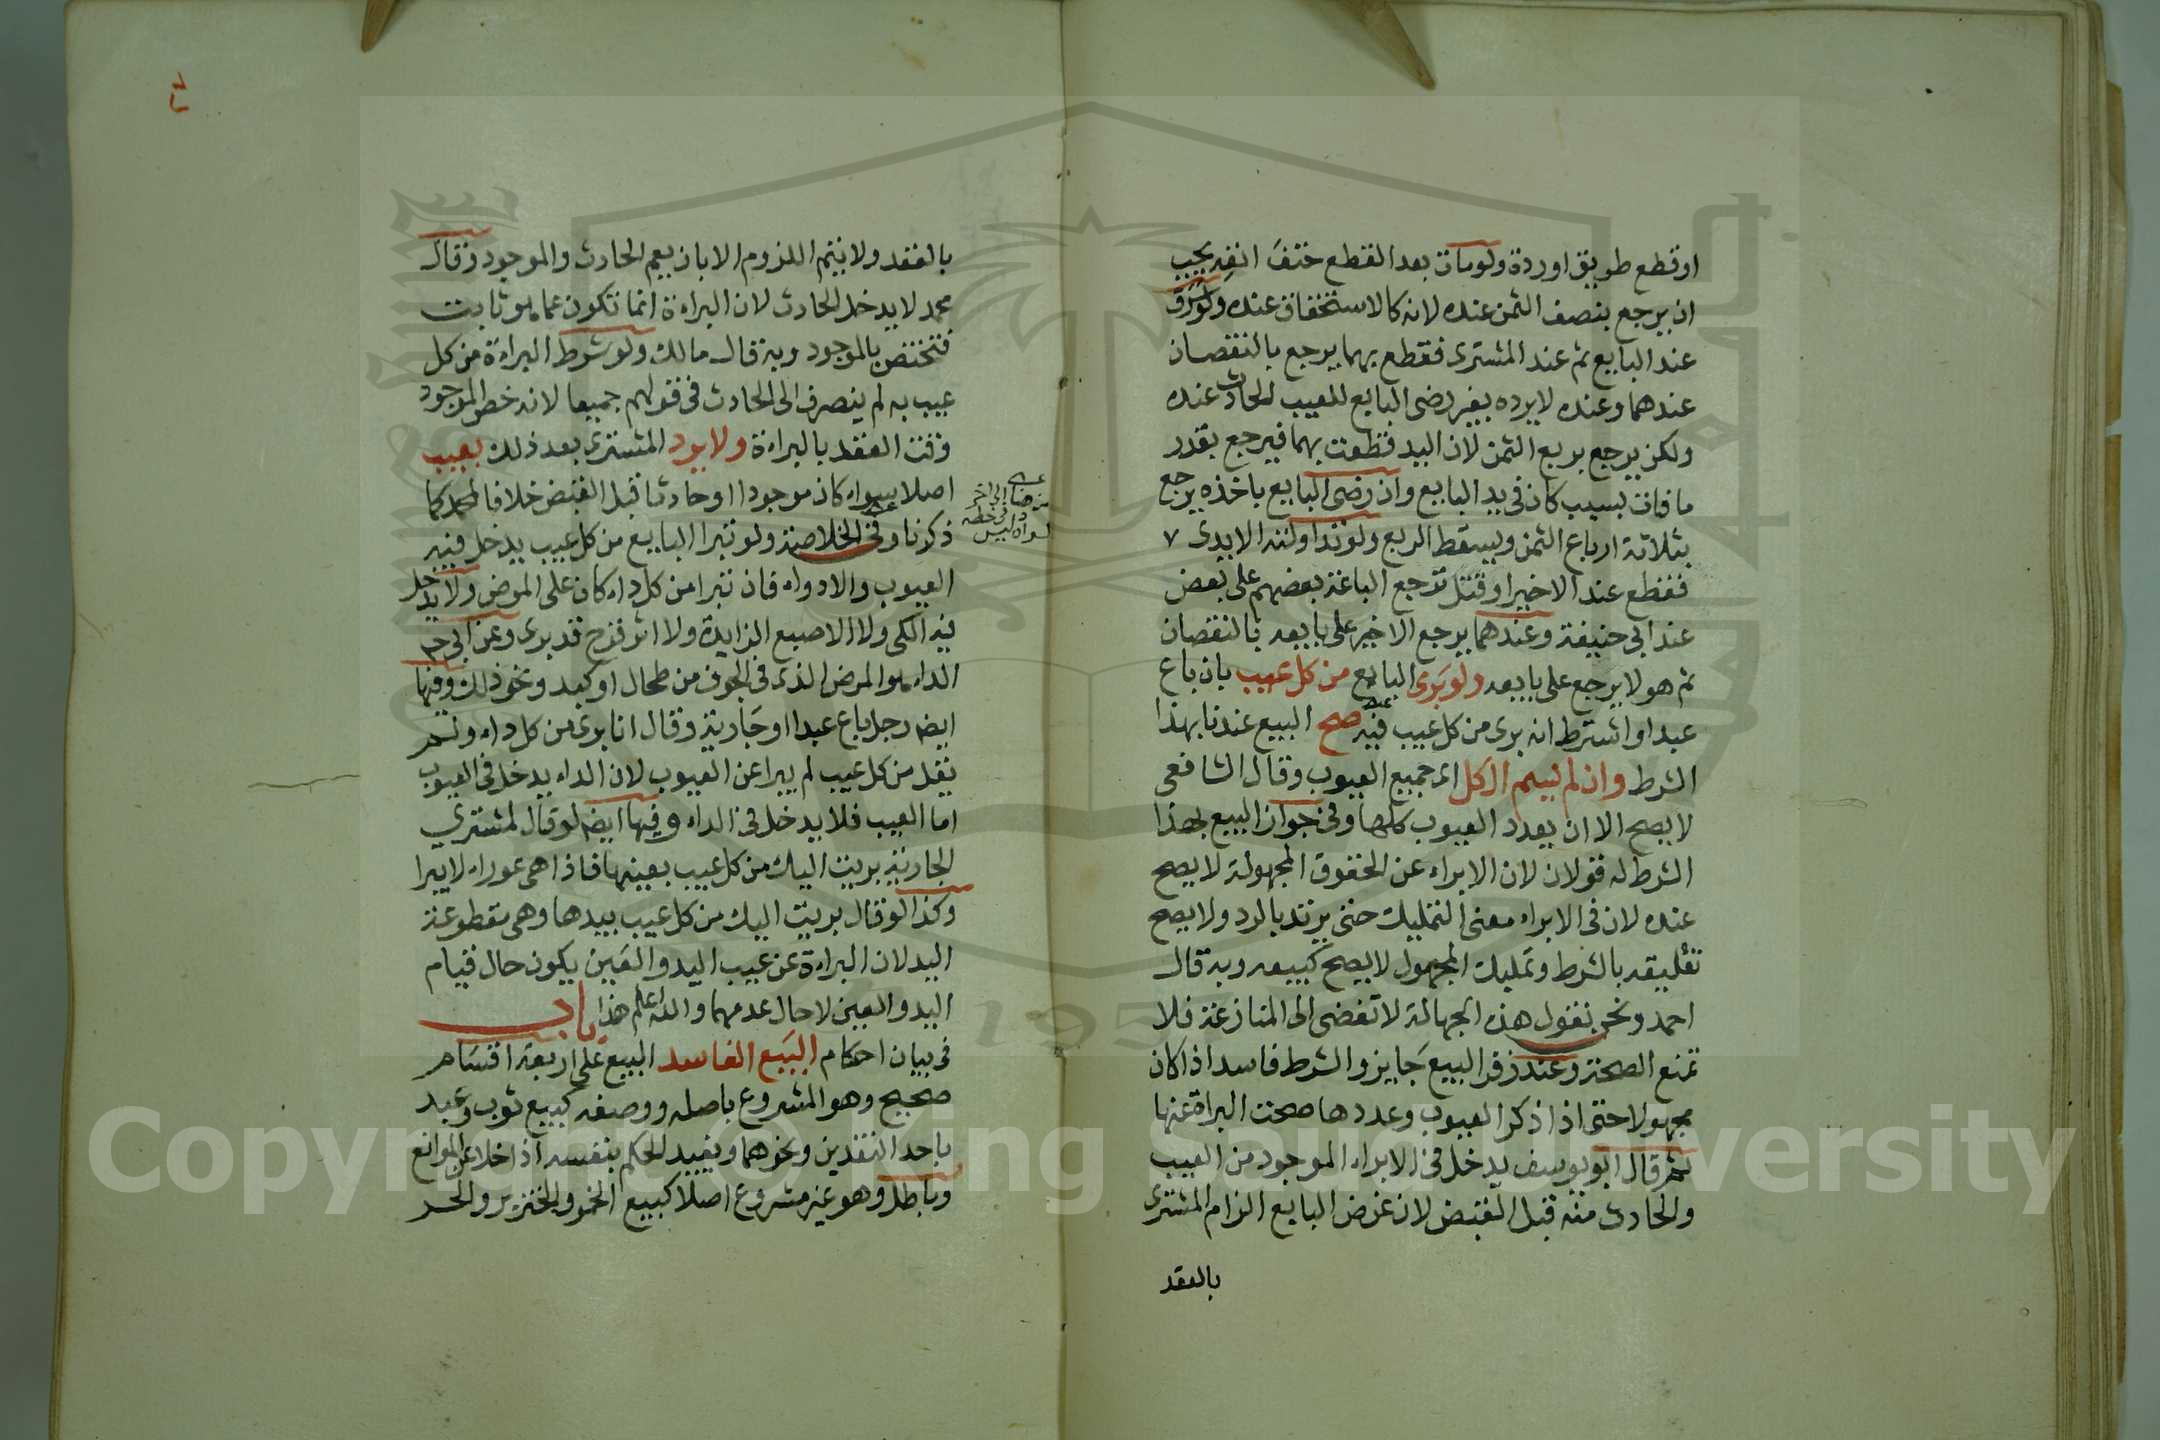 او قطع طريق او ردة ولو مات بعد القطع حتف انفه يجب
ان يرجع بنصف الثمن عنده لانه كالاستحقاق عنده ولو سرق
عند البايع ثم عند المشترى فقطع بهما يرجع بالنقصان
عندهما وعنده لا يرده بغير رضى البايع للعيب الحادث عنده
ولكن يرجع بربع الثمن لان اليد قطعت بهما فيرجع بقدر
ما فات بسبب كان فى يد البايع وان رضى البايع باخذه يرجع
بثلاثة ارباع الثمن ويسقط الربع ولو تداولته الايدى ٧
فقطع عند الاخير او قتل ترجع الباعة بعضهم على بعض
عند ابى حنيفة وعندهما يرجع الاخير على بايعه بالنقصان
ثم هو لا يرجع على بايعه ولو برى البايع من كل عيب بان باع
عبدا واشترط انه برى من كل عيب فيه صح البيع عندنا بهذا
الشرط وان لم يسم الكل اى جميع العيوب وقال الشافعى
لا يصح الا ان يعدد العيوب كلها وفى جواز البيع بهذا
الشرط له قولان لان الابراء عن الحقوق المجهولة لا يصح
عنده لان فى الابراء معنى التمليك حتى يرتد بالرد ولا يصح
تعليقه بالشرط وتمليك المجهول لا يصح كبيعه وبه قال
احمد ونحن نقول هذه الجهالة لا تفضى الى المنازعة فلا
تمنع الصحة وعند زفر البيع جايز والشرط فاسد اذا كان
مجهولا حتى اذا ذكر العيوب وعددها صحت البراة عنها
ثم قال ابو يوسف يدخل فى الابراء الموجود من العيب
والحادث منه قبل القبض لان غرض البايع الزام المشترى
بالعقد
بالعقد ولا يتم اللزوم الا بان يعم الحادث والموجود وقال
محمد لا يدخل الحادث لان البراءة انما تكون عما هو ثابت
فتختص بالموجود وبه قال مالك ولو شرط البراءة من كل
عيب به لم ينصرف الى الحادث فى قولهم جميعا لانه خص الموجود
وقت العقد بالبراءة ولا يرد المشترى بعد ذلك بعيب
اصلا سواء كان موجودا او حادثا قبل القبض خلافا لمحمد كما
ذكرنا وفى الخلاصة ولو تبرا البايع من كل عيب يدخل فيه
العيوب والادواء فان تبرا من كل داء كان على المرض ولا يدخل
فيه الكى ولا الاصبع الزايدة ولا اثر قرح قد برى وعن ابى ح
الداء هو المرض الذى فى الجوف من طحال او كبد ونحو ذلك وفيها
ايض رجل باع عبدا او جارية وقال انا برى من كل داء ولم
يقل من كل عيب لم يبرا عن العيوب لان الداء يدخل فى العيوب
اما العيب فلا يدخل فى الداء وفيها ايض لو قال لمشترى
الجارية بريت اليك من كل عيب بعينها فاذا هى عوراء لا يبرا
وكذا لو قال بريت اليك من كل عيب بيدها وهى مقطوعة
اليد لان البراءة عن عيب اليد والعين يكون حال قيام
اليد والعين لا حال عدمهما والله اعلم هذا باب
فى بيان احكام البيع الفاسد البيع على اربعة اقسام
صحيح وهو المشروع باصله ووصفه كبيع ثوب وعبد
باحد النقدين ونحوهما ويفيد الحكم بنفسه اذا خلا عن الموانع
وباطل وهو غير مشروع اصلا كبيع الخمر والخنزير والحر
Copyright © King Saud University